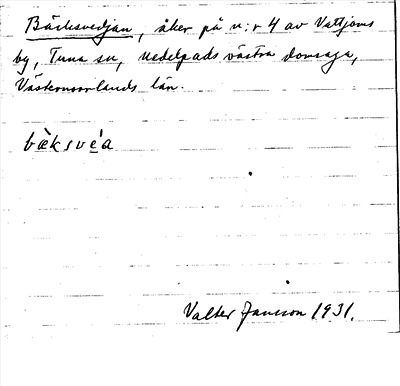 Bäcksvedjan, åker på n:r 4 av Vattjoms
by, Tuna sn, Medelpads västra domsaga,
Västernorrlands län.
bæ̀ksve̍a
Valter Jansson 1931.